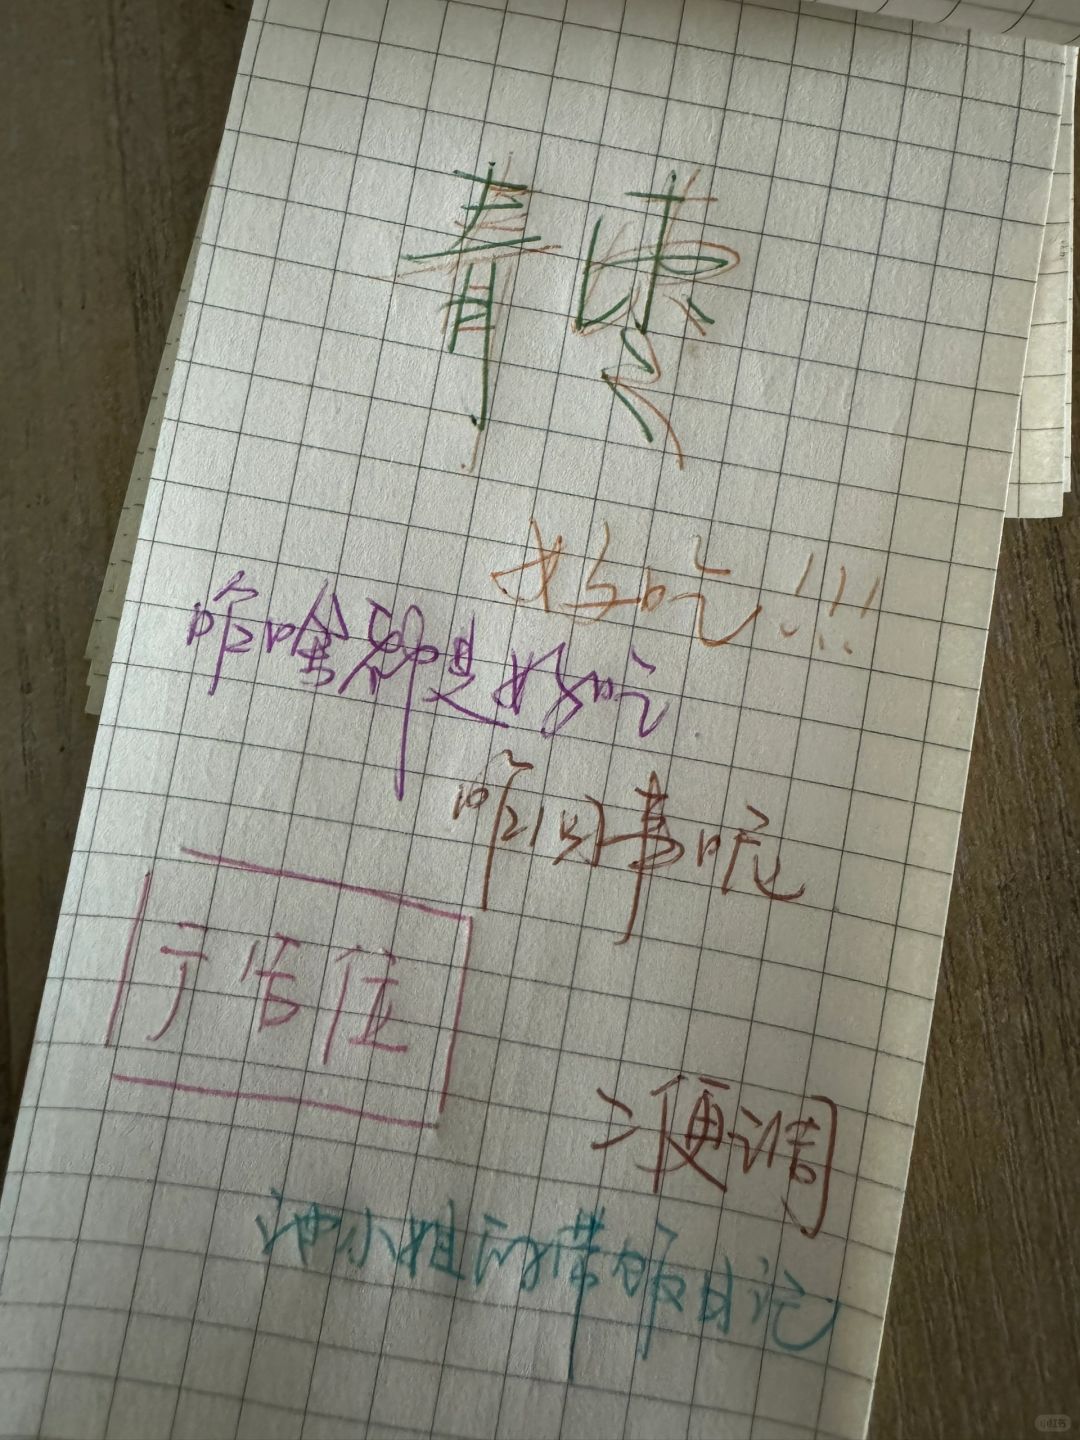 青
好吃!!!
咋啥都是好吃
咋回事呢
广告位
便调
小姐的 日记
小红书